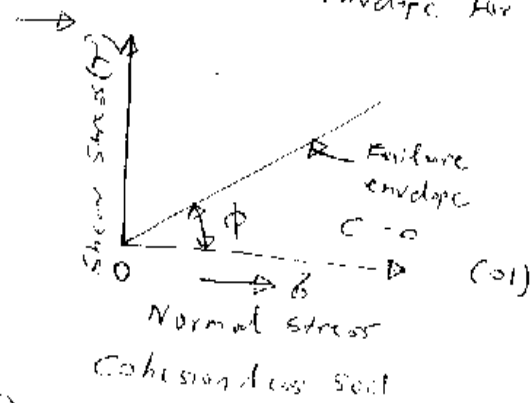 envelope for
Shear stress (τ)
Failure
envelope
ϕ
C = 0
0
σ
(01)
Normal stress
Cohesionless Soil